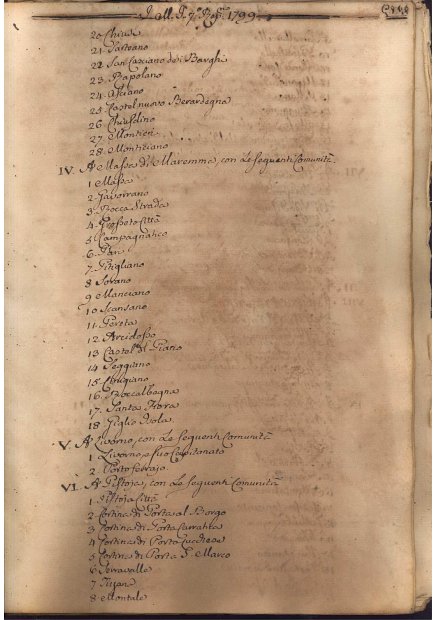 1799
20 Chiusi
21 Sarteano
22 San Casciano dei Baaghi
23 Rapolano
24 Asciano
25 Castel nuovo Berardegna
26 Chiusdino
27 Montieri
28 Monticiano
IV. A Massa di Maremma, con Le seguenti Comunità
1 Massa
2 Gavorrano
3 Rocca Strada
4 Grosseto Città
5 Campagnatico
6 Pari
7 Pitigliano
8 Sorano
9 Manciano
10 Scansano
11 Pereta
12 Arcidosso
13 Castel del Piano
14 Seggiano
15 Cinigiano
16 Roccalbegna
17 Santa Fiora
18 Giglio Isola
V. A Livorno, con Le seguenti Comunità
1 Livorno, e suo Capitanato
2 Porto ferrajo
VI. A Pistoja, con Le seguenti Comunità
1 Pistoja Città
2 Cortina di Porta al Borgo
3 Cortina di Porta Carratica
4 Cortina di Porta Lucchese
5 Cortina di Porta S. Marco
6 Serravalle
7 Tizzana
8 Montale